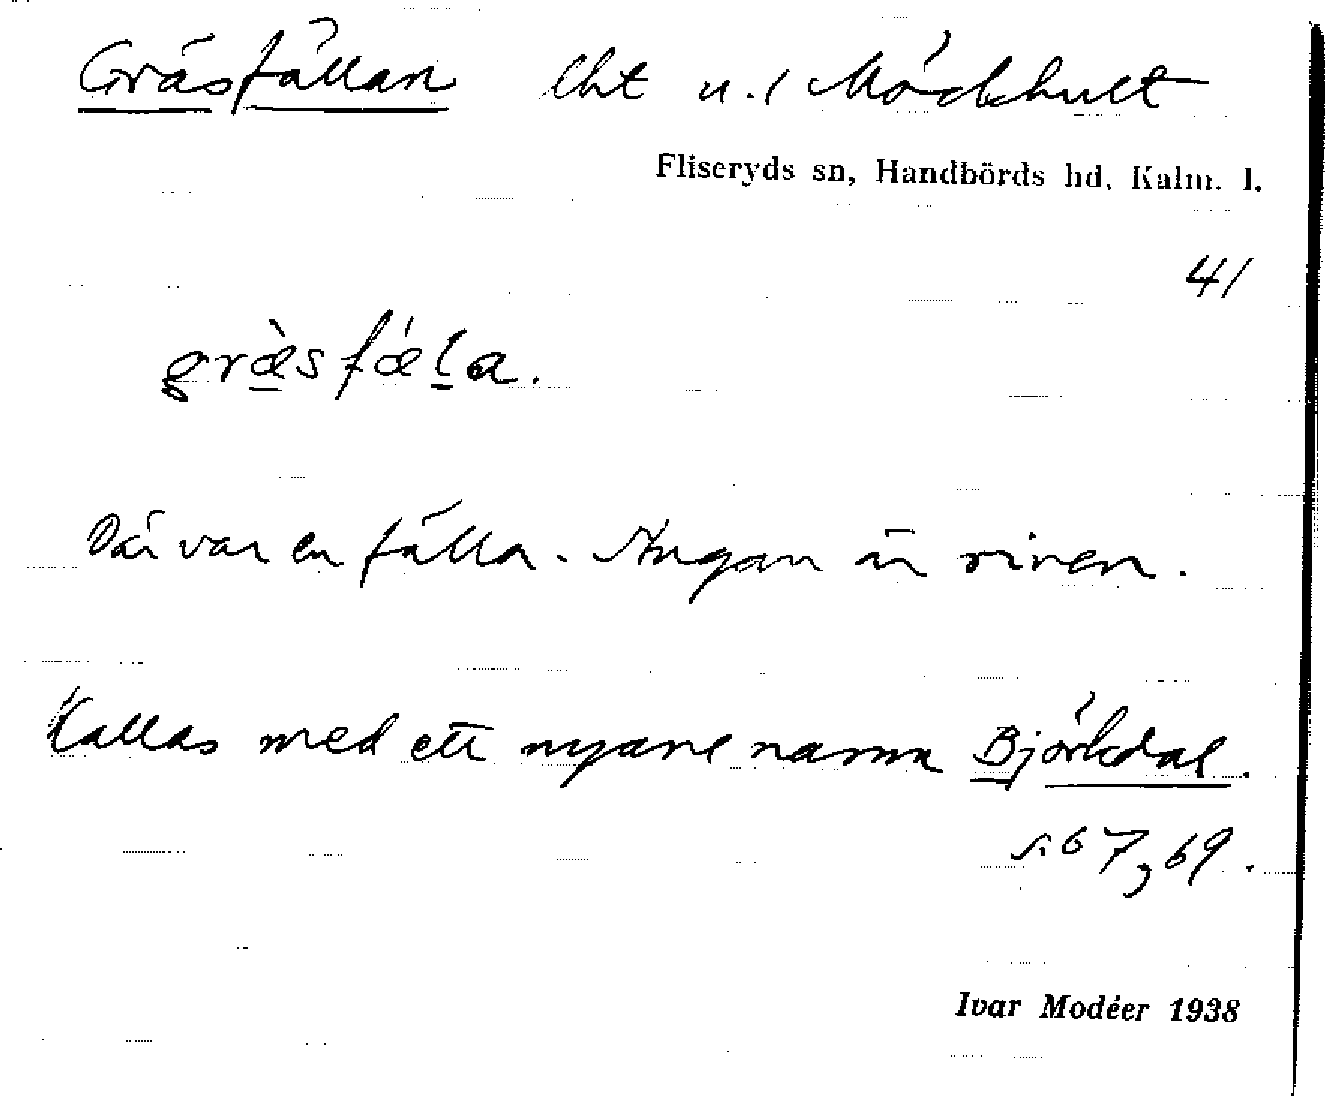 Gräsfällan lht u./ Möckhult
Fliseryds sn, Handbörds hd, Kalm. l.
41
græ̀sfǽla.
Där var en fälla. Stugan är riven.
Kallas med ett nyare namn Björkdal.
s. 67, 69.
Ivar Modéer 1938